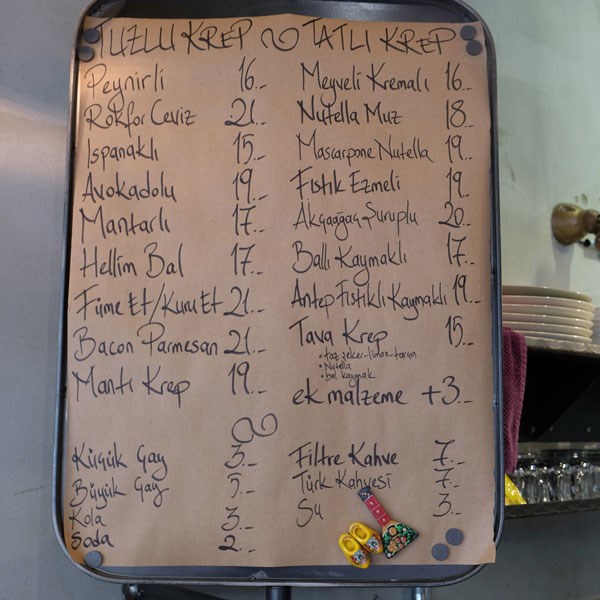 TUZLU KREP
Peynirli 16.-
Rokfor Ceviz 21.-
Ispanaklı 15.-
Avokadolu 19.-
Mantarlı 17.-
Hellim Bal 17.-
Füme Et/Kuru Et 21.-
Bacon Parmesan 21.-
Mantı Krep 19.-
TATLI KREP
Meyveli Kremalı 16.-
Nutella Muz 18.-
Mascarpone Nutella 19.-
Fıstık Ezmeli 19.
Akçaağaç Şuruplu 20.-
Ballı Kaymaklı 17.-
Antep Fıstıklı Kaymaklı 19.-
Tava Krep 15.-
• toz şeker-limon-tarçın
• Nutella
• bal kaymak
ek malzeme +3.-
Küçük Çay 3.-
Büyük Çay 5.-
Kola 3.-
Soda 2.-
Filtre Kahve 7.-
Türk Kahvesi 7.-
Su 3.-